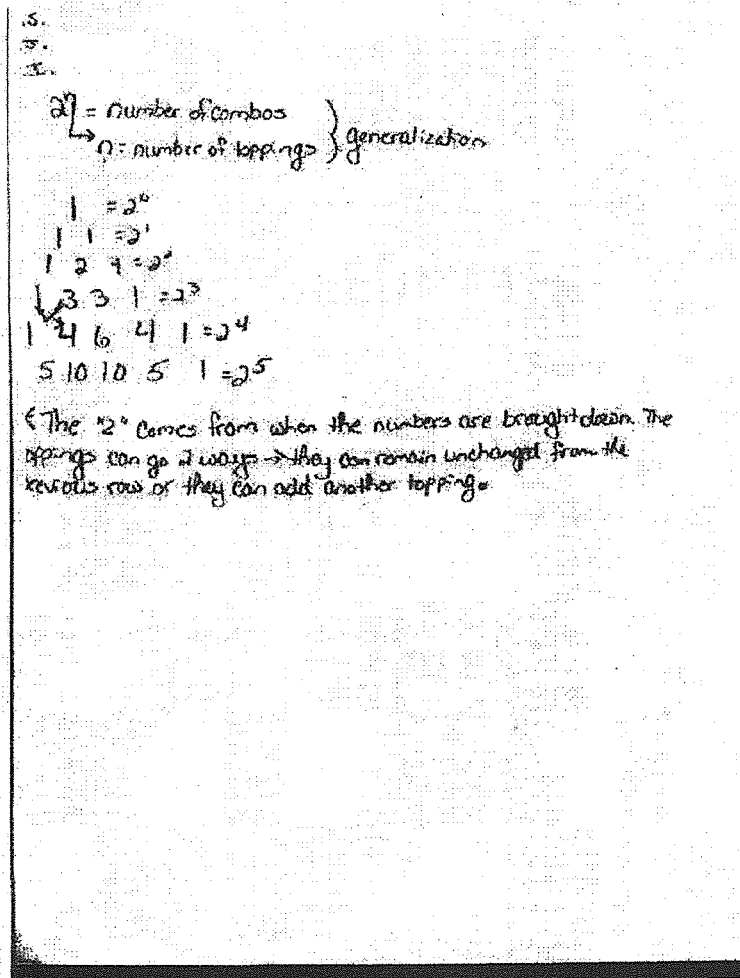 .S.
J.
I.
2ⁿ = number of combos
n = number of toppings } generalization
1 = 2⁰
1 1 = 2¹
1 2 1 = 2²
1 3 3 1 = 2³
1 4 6 4 1 = 2⁴
5 10 10 5 1 = 2⁵
The "2" comes from when the numbers are brought down. The
oppings can go 2 ways → they can remain unchanged from the
revious row or they can add another topping.